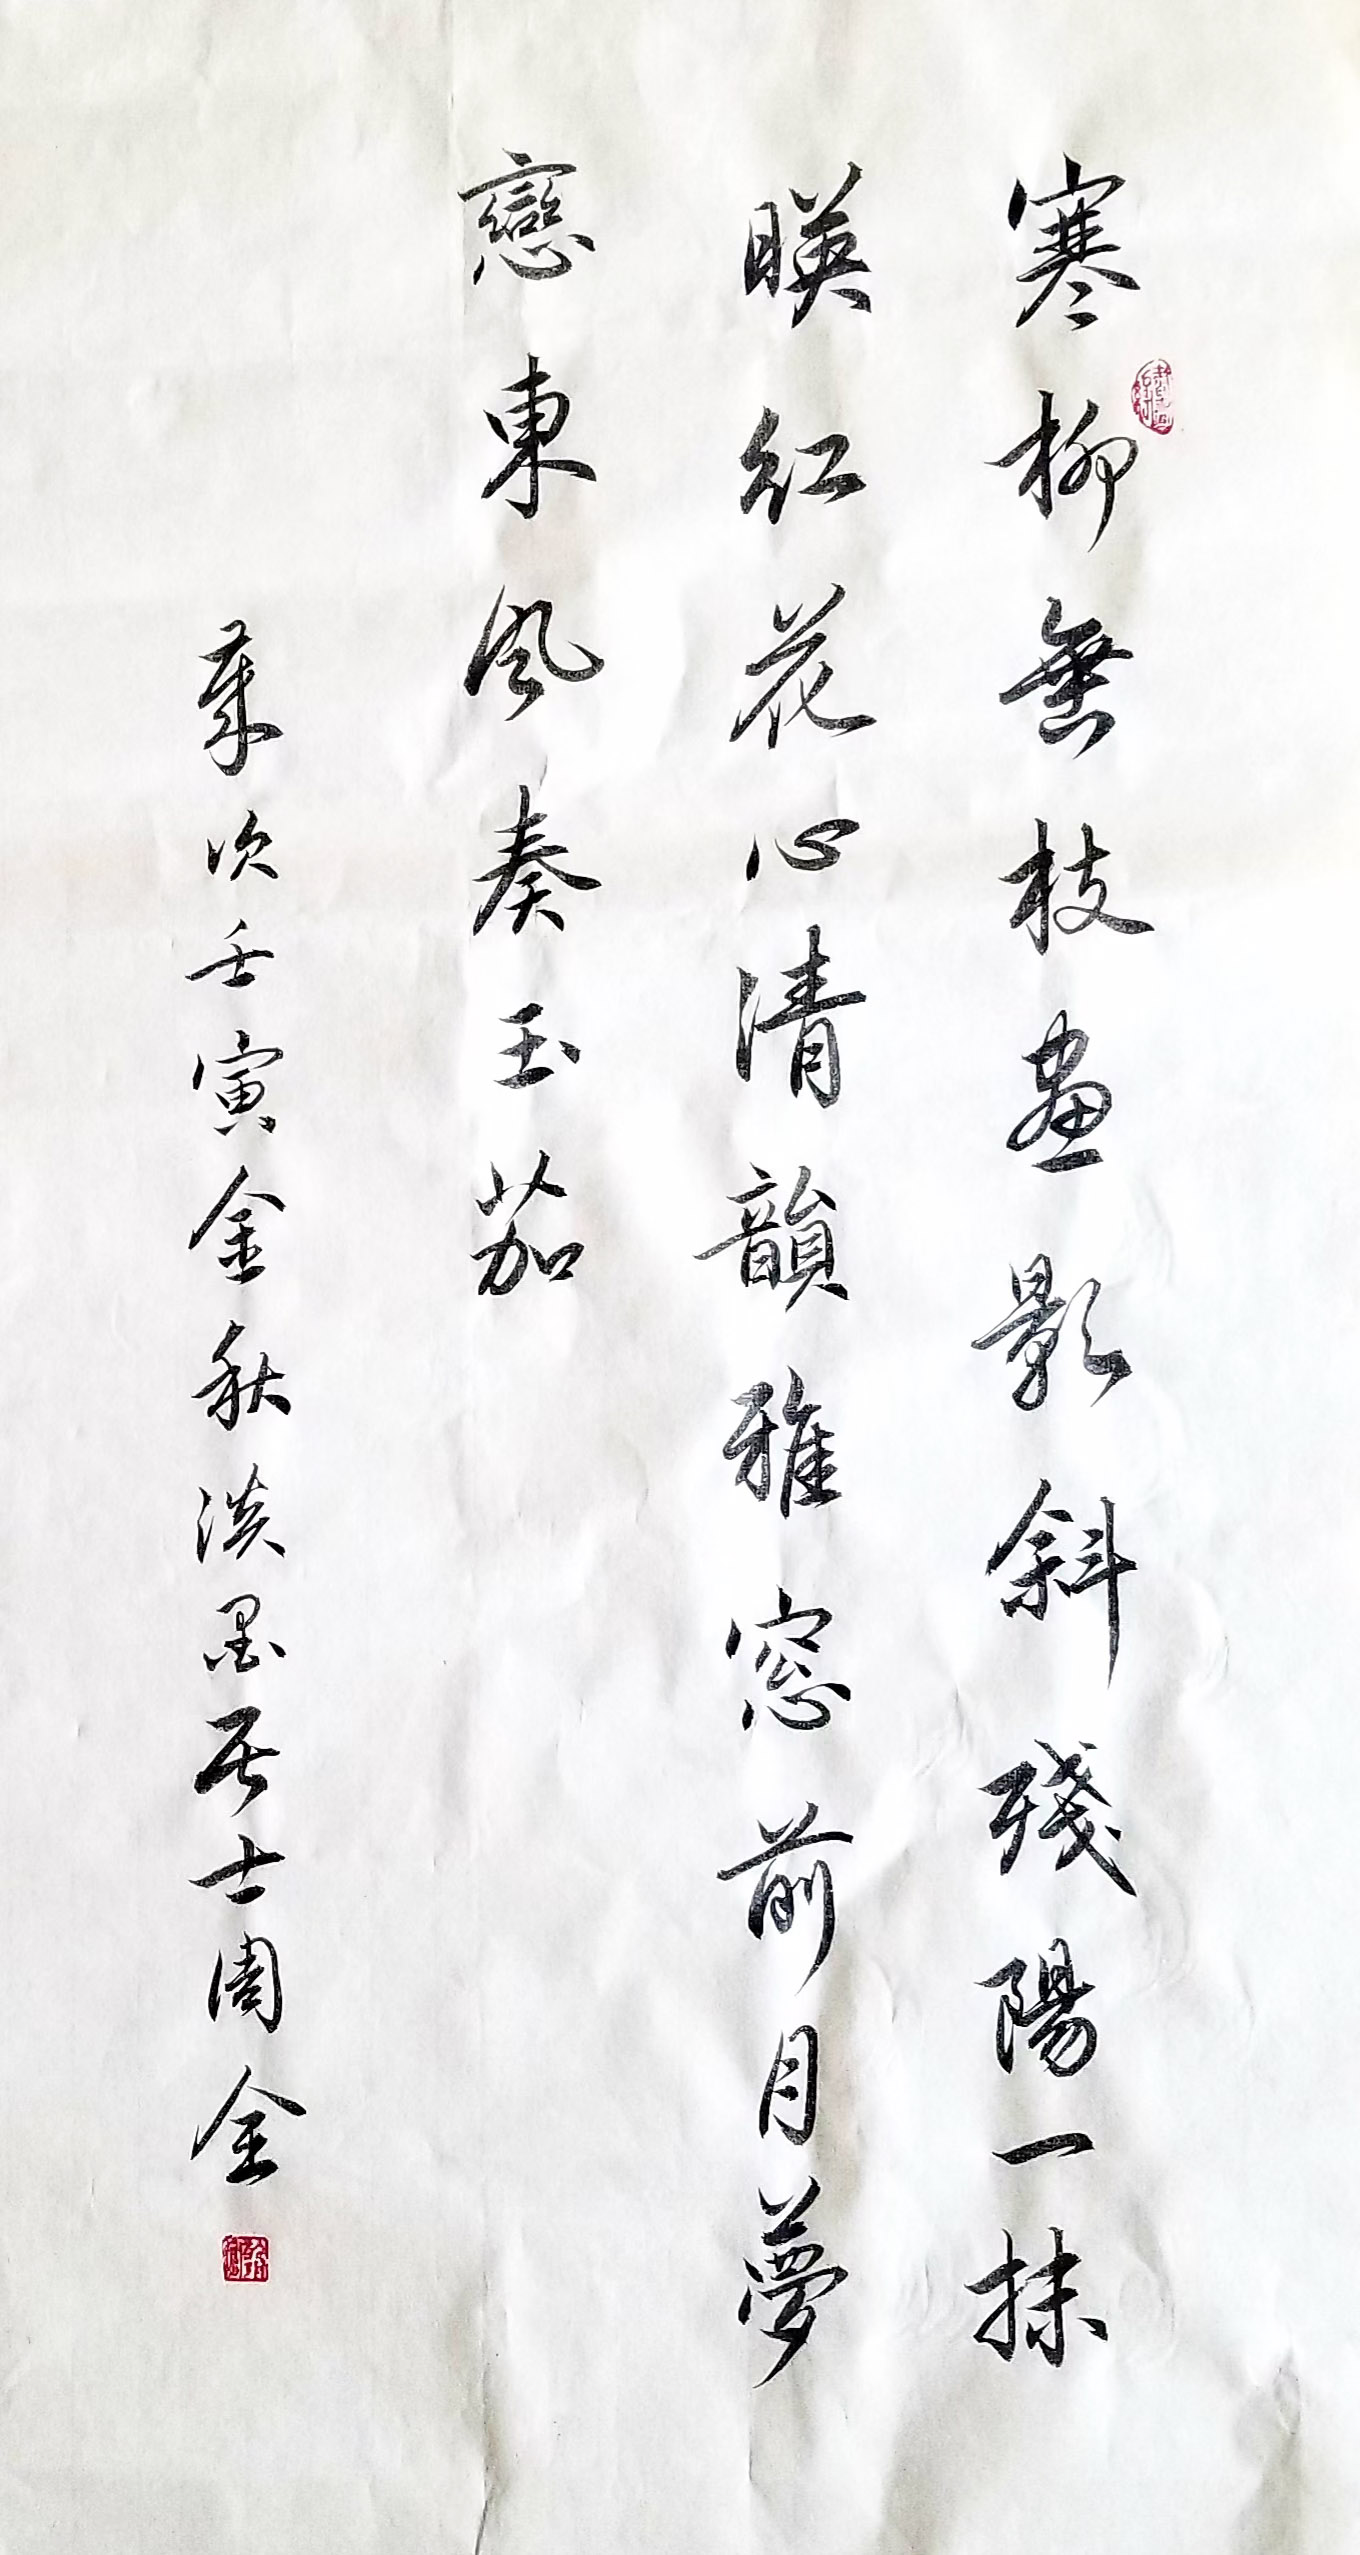 寒柳垂枝畫影斜殘陽一抹
暎紅花心清韻雅窓前月夢
戀東風奏玉茄
歲次壬寅金秋淡墨居士周金